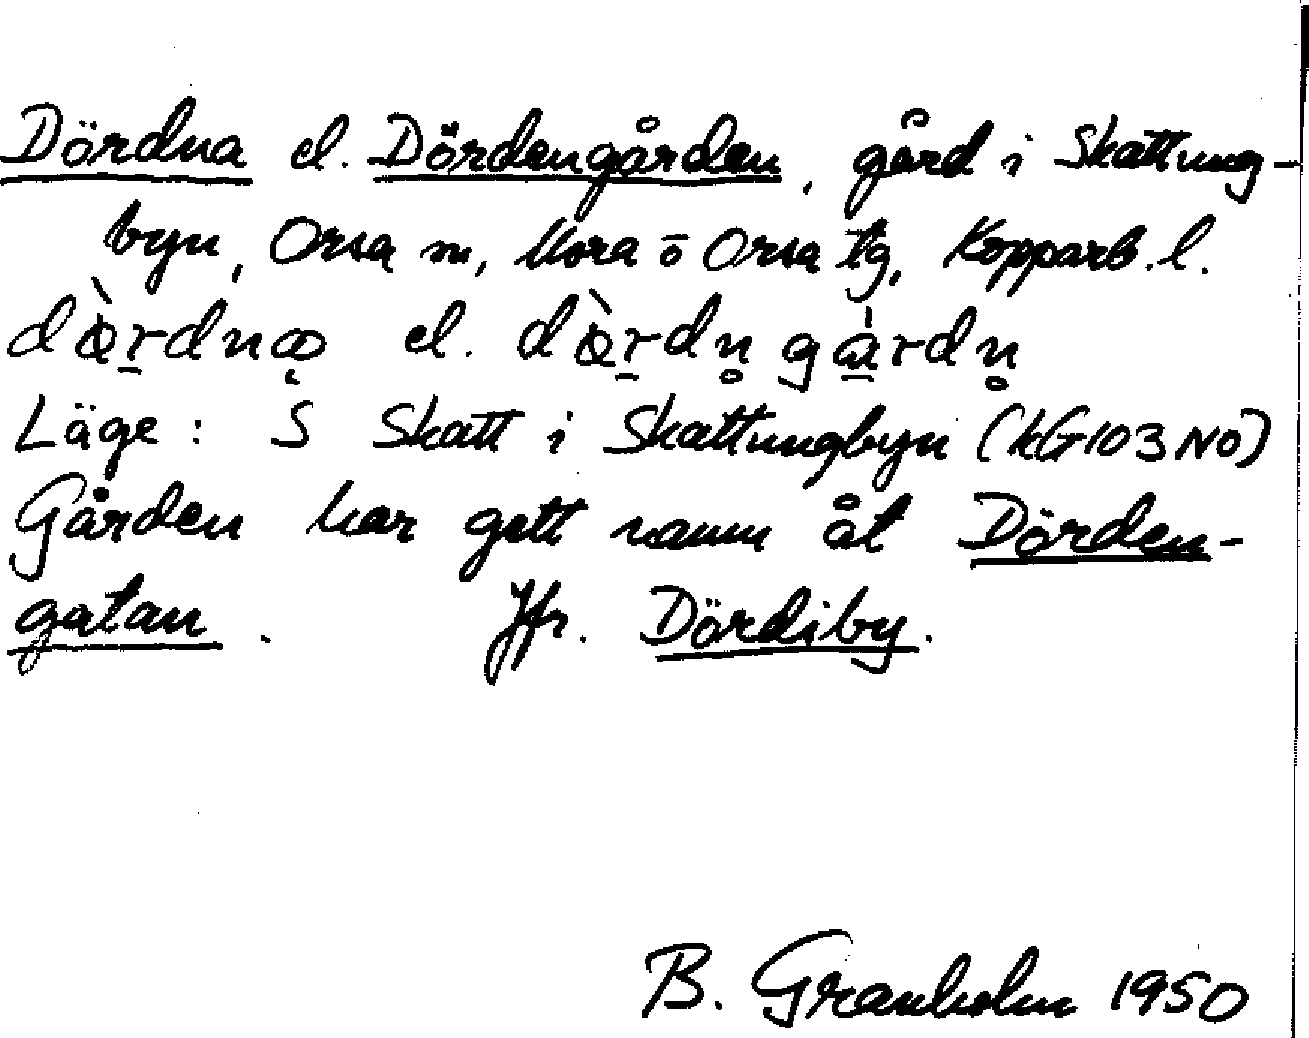 Dördna el. Dördengården, gård i Skattung-
byn, Orsa sn, Mora o Orsa tg, Kopparb. l.
dæ̀rdnꝏ el. dæ̀rdn̥ gárdn̥
Läge: S Skatt i Skattungbyn (kG103NO)
Gården har gett namn åt Dörden-
gatan. Jfr. Dördiby.
B. Granholm 1950